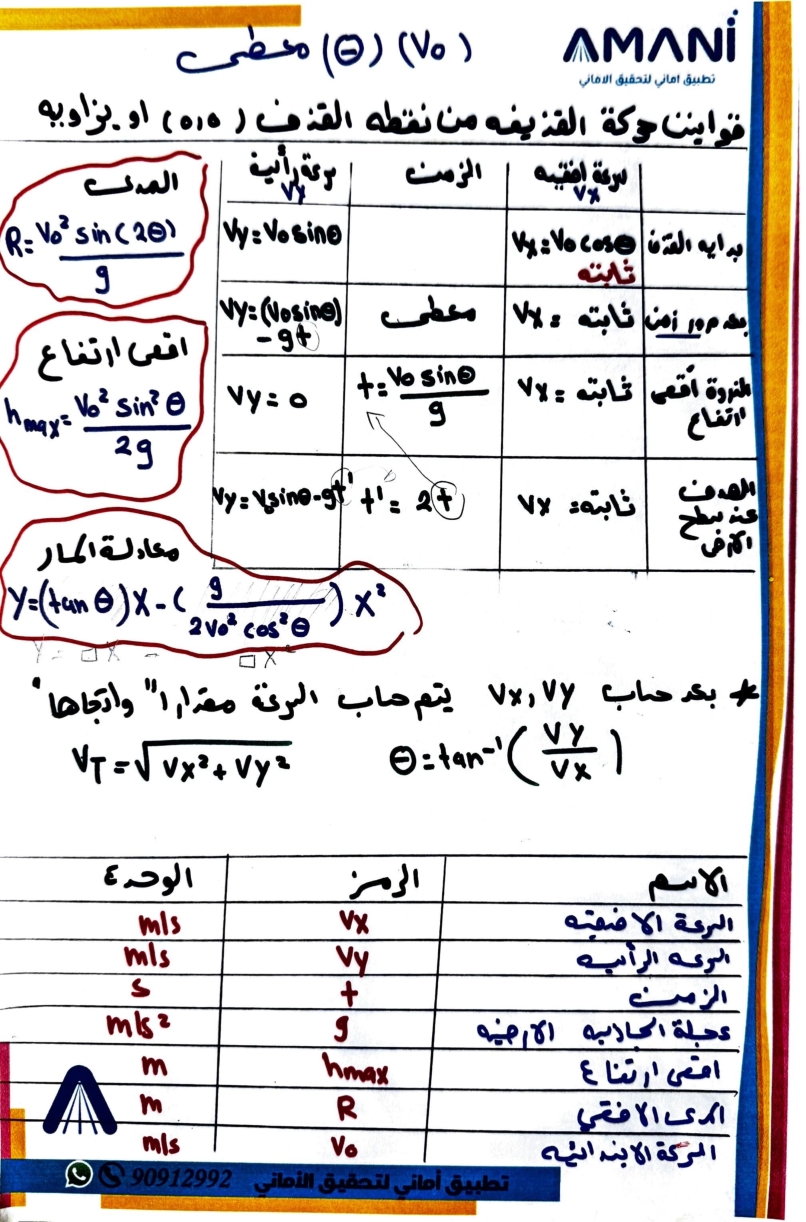 AMANi
تطبيق أماني لتحقيق الأماني
(V₀) (θ) معطى
قوانين حركة القذيفه من نقطه القذف (0,0) او بزاويه
سرعة افقيه Vx | الزمن | سرعة رأسية Vy
بدايه القذف | Vx = V₀ cosθ ثابته | | Vy = V₀ sinθ
بعد مرور زمن | Vx = ثابته | معطى | Vy = (V₀ sinθ) - gt
الذروة أقصى ارتفاع | Vx = ثابته | t = V₀ sinθ / g | Vy = 0
الهدف عند سطح الأرض | Vx = ثابته | t' = 2t | Vy = V₀ sinθ - gt'
المدى
R = V₀² sin(2θ) / g
اقصى ارتفاع
hmax = V₀² sin² θ / 2g
معادلة المسار
Y = (tan θ) X - ( g / 2V₀² cos² θ ) X²
* بعد حساب Vx, Vy يتم حساب السرعة مقدارا" واتجاها"
VT = √Vx² + Vy²
θ = tan⁻¹ ( Vy / Vx )
الاسم | الرمز | الوحدة
السرعة الافقيه | Vx | m/s
السرعه الرأسيه | Vy | m/s
الزمن | t | s
عجلة الجاذبيه الارضيه | g | m/s²
اقصى ارتفاع | hmax | m
المدى الافقي | R | m
السرعة الابتدائيه | V₀ | m/s
90912992 تطبيق أماني لتحقيق الأماني